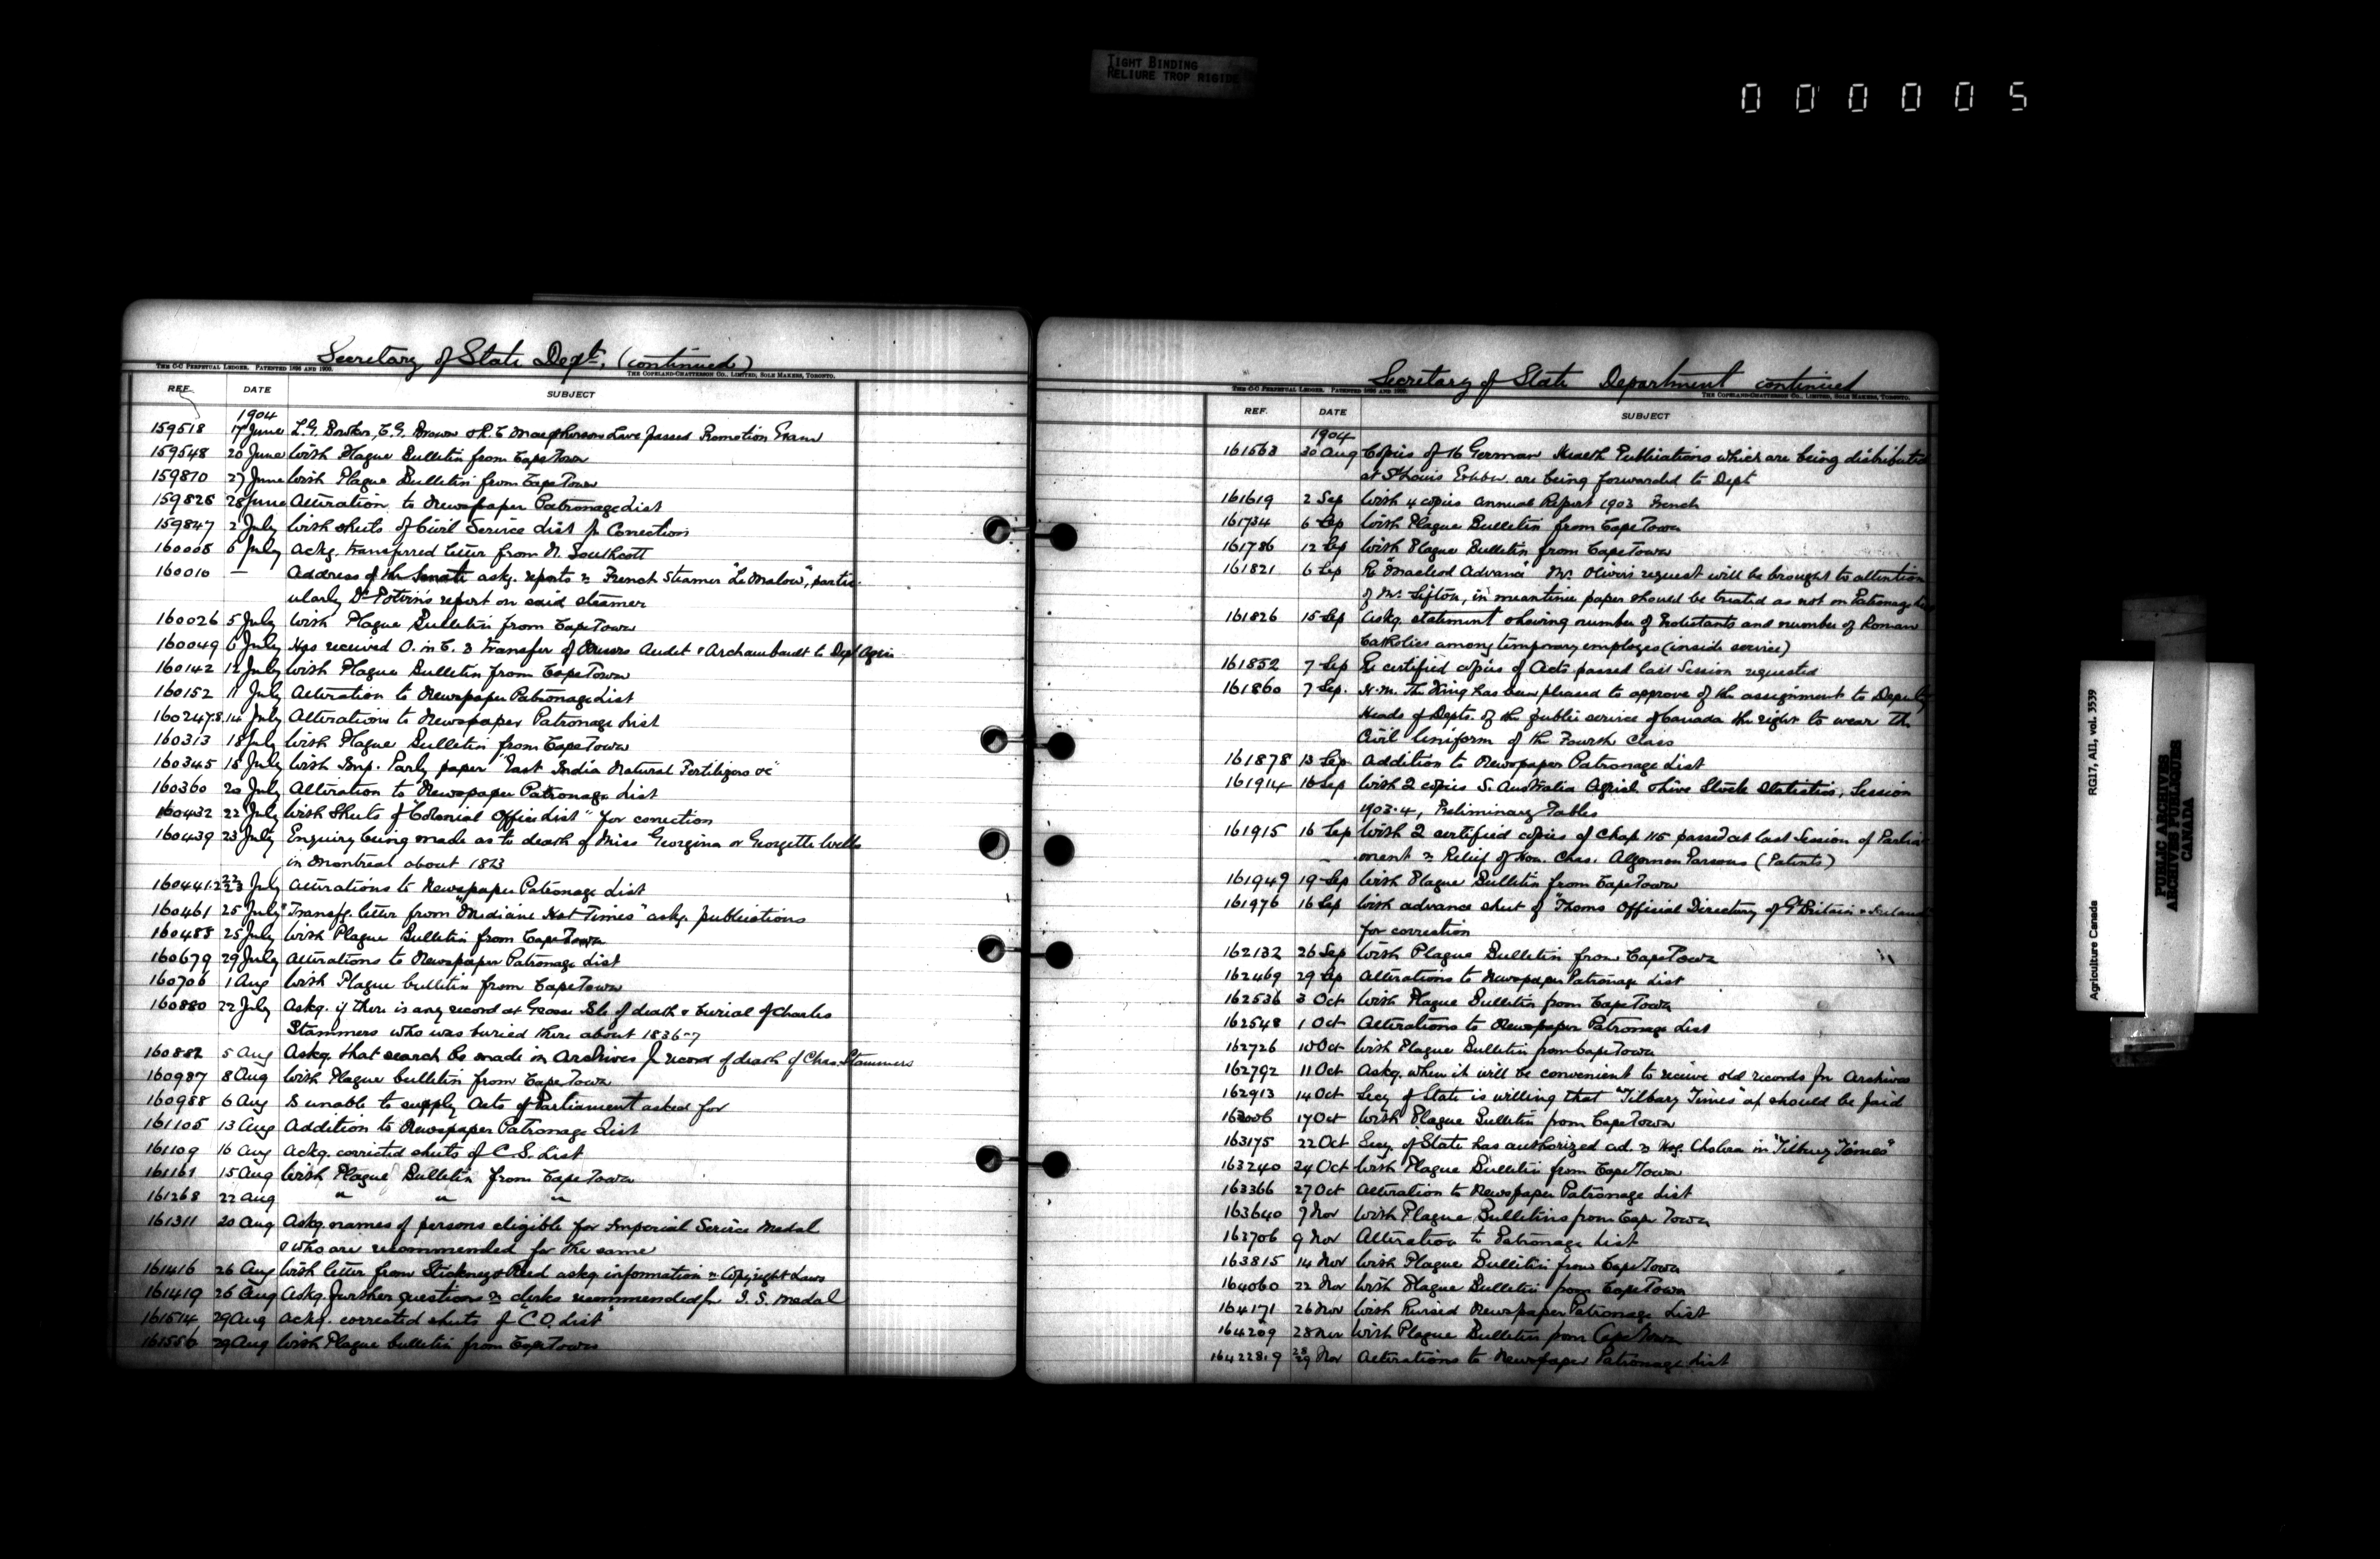 TIGHT BINDING
RELIURE TROP RIGIDE
000005
Secretary of State Dept. (continued)
THE C-C PERPETUAL LEDGER. PATENTED 1896 AND 1900.
THE COPELAND-CHATTERSON CO., LIMITED, SOLE MAKERS, TORONTO.
REF. DATE SUBJECT
1904
159518 17 June L.G. E.G. Brown & R.E. Macpherson have passed Promotion Exam
159548 20 June With Plague Bulletin from Cape Town
159810 27 June With Plague Bulletin from Cape Town
159826 28 June Alteration to Newspaper Patronage List
159847 2 July With sheets of Civil Service List for Correction
160005 5 July Ackg. transferred letter from N. Southcott
160010 — Address of the Senate askg. reports re French Steamer "Le Malow", partic-
ularly Dr Potvin's report on said steamer
160026 5 July With Plague Bulletin from Cape Town
160049 6 July Has received O. in C. re transfer of Messrs Audet & Archambault to Dept Agric
160142 12 July With Plague Bulletin from Cape Town
160152 11 July Alteration to Newspaper Patronage List
160247.8 14 July Alterations to Newspaper Patronage List
160313 18 July With Plague Bulletin from Cape Town
160345 18 July With Imp. Parly paper "East India Natural Fertilizers &c"
160360 20 July Alteration to Newspaper Patronage List
160432 22 July With Sheets of "Colonial Office List" for correction
160439 23 July Enquiry being made as to death of Miss Georgina or Georgette Wells
in Montreal about 1823
160441.2 22/23 July Alterations to Newspaper Patronage List
160461 25 July Transfg. letter from "Mediane Hat Times" askg. publications
160483 25 July With Plague Bulletin from Cape Town
160679 29 July Alterations to Newspaper Patronage List
160706 1 Aug With Plague bulletin from Cape Town
160880 22 July Askg. if there is any record at Grosse Isle of death & burial of Charles
Stammers who was buried there about 1836-7
160882 5 Aug Askg. that search be made in Archives for record of death of Chas. Stammers
160987 8 Aug With Plague bulletin from Cape Town
160988 6 Aug Is unable to supply Acts of Parliament asked for
161105 13 Aug Addition to Newspaper Patronage List
161109 16 Aug Ackg. corrected sheets of C.S. List
161161 15 Aug With Plague Bulletin from Cape Town
161268 22 Aug " " "
161311 20 Aug Askg. names of persons eligible for Imperial Service Medal
& who are recommended for the same
161416 26 Aug With letter from Stickney & Reed askg. information re Copyright Laws
161419 26 Aug Askg. further questions re clerks recommended for I.S. Medal
161514 29 Aug Ackg. corrected sheets of "C.O. List"
161556 29 Aug With Plague bulletin from Cape Town
Secretary of State Department continued
THE C-C PERPETUAL LEDGER. PATENTED 1896 AND 1900.
THE COPELAND-CHATTERSON CO., LIMITED, SOLE MAKERS, TORONTO.
REF. DATE SUBJECT
1904
161563 30 Aug Copies of 16 German Health Publications which are being distributed
at St Louis are being forwarded to Dept
161619 2 Sep With 4 copies Annual Report 1903 French
161734 6 Sep With Plague Bulletin from Cape Town
161786 12 Sep With Plague Bulletin from Cape Town
161821 6 Sep Re "Macleod Advance" Mr. Oliver's request will be brought to attention
of Mr. Sifton, in meantime paper should be treated as not on Patronage List
161826 15 Sep Askg. statement showing number of Protestants and number of Roman
Catholics among temporary employes (inside service)
161852 7 Sep Re certified copies of Acts passed last Session requested
161860 7 Sep. H.M. The King has been pleased to approve of the assignment to Deputy
Heads of Depts. of the public service of Canada the right to wear the
Civil Uniform of the Fourth Class
161878 13 Sep. Addition to Newspaper Patronage List
161914 16 Sep With 2 copies S. Australia Agricl. & Live Stock Statistics, Session
1903-4, Preliminary Tables
161915 16 Sep With 2 certified copies of Chap 115 passed at last Session of Parlia-
ment re Relief of Hon. Chas. Algernon Parsons (Patents)
161949 19 Sep With Plague Bulletin from Cape Town
161976 16 Sep With advance sheet of "Thoms Official Directory of Gt Britain & Ireland"
for correction
162132 26 Sep With Plague Bulletin from Cape Town
162469 29 Sep Alterations to Newspaper Patronage List
162536 3 Oct With Plague Bulletin from Cape Town
162548 1 Oct Alterations to Newspaper Patronage List
162726 10 Oct With Plague Bulletin from Cape Town
162792 11 Oct Askg. when it will be convenient to receive old records for Archives
162913 14 Oct Secy of State is willing that "Tilbury Times" a/c should be paid
163006 17 Oct With Plague Bulletin from Cape Town
163175 22 Oct Secy. of State has authorized ad. re Hog Cholera in "Tilbury Times"
163240 24 Oct With Plague Bulletin from Cape Town
163366 27 Oct Alteration to Newspaper Patronage List
163640 7 Nov With Plague Bulletins from Cape Town
163706 9 Nov Alteration to Patronage List
163815 14 Nov With Plague Bulletin from Cape Town
164060 22 Nov With Plague Bulletin from Cape Town
164171 26 Nov With Revised Newspaper Patronage List
164209 28 Nov With Plague Bulletin from Cape Town
164228.9 28/29 Nov Alterations to Newspaper Patronage List
Agriculture Canada RG17, AII, vol. 3539
PUBLIC ARCHIVES
ARCHIVES PUBLIQUES
CANADA